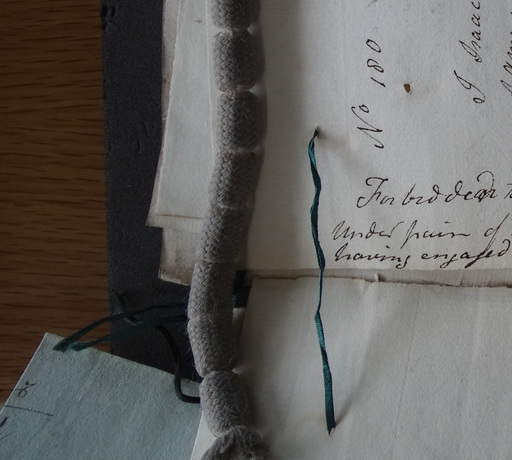 No 180
I Isaac
Forbidden
under pain of
having engaged